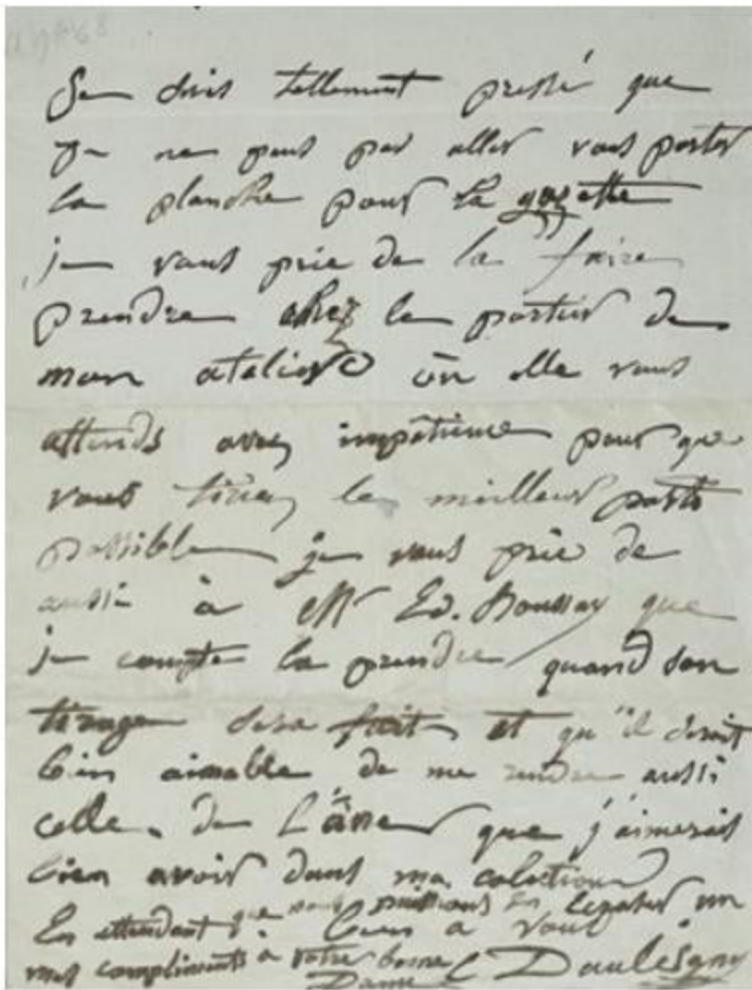 Je suis tellement pressé que
je ne peus pas aller vous porter
la planche pour la gazette
je vous prie de la faire
prendre chez le portier de
mon atelier où elle vous
attends avec impatience pour que
vous tiriez le meilleur parti
possible je vous prie de
aussi à Mr Ed. que
je compte la prendre quand son
tirage sera fait et qu'il serait
bien aimable de me rendre aussi
celle de l'âne que j'aimerais
bien avoir dans ma colection
En attendant que nous puissions en un
bien à vous
mes compliments à votre bonne
Dame C Daubigny